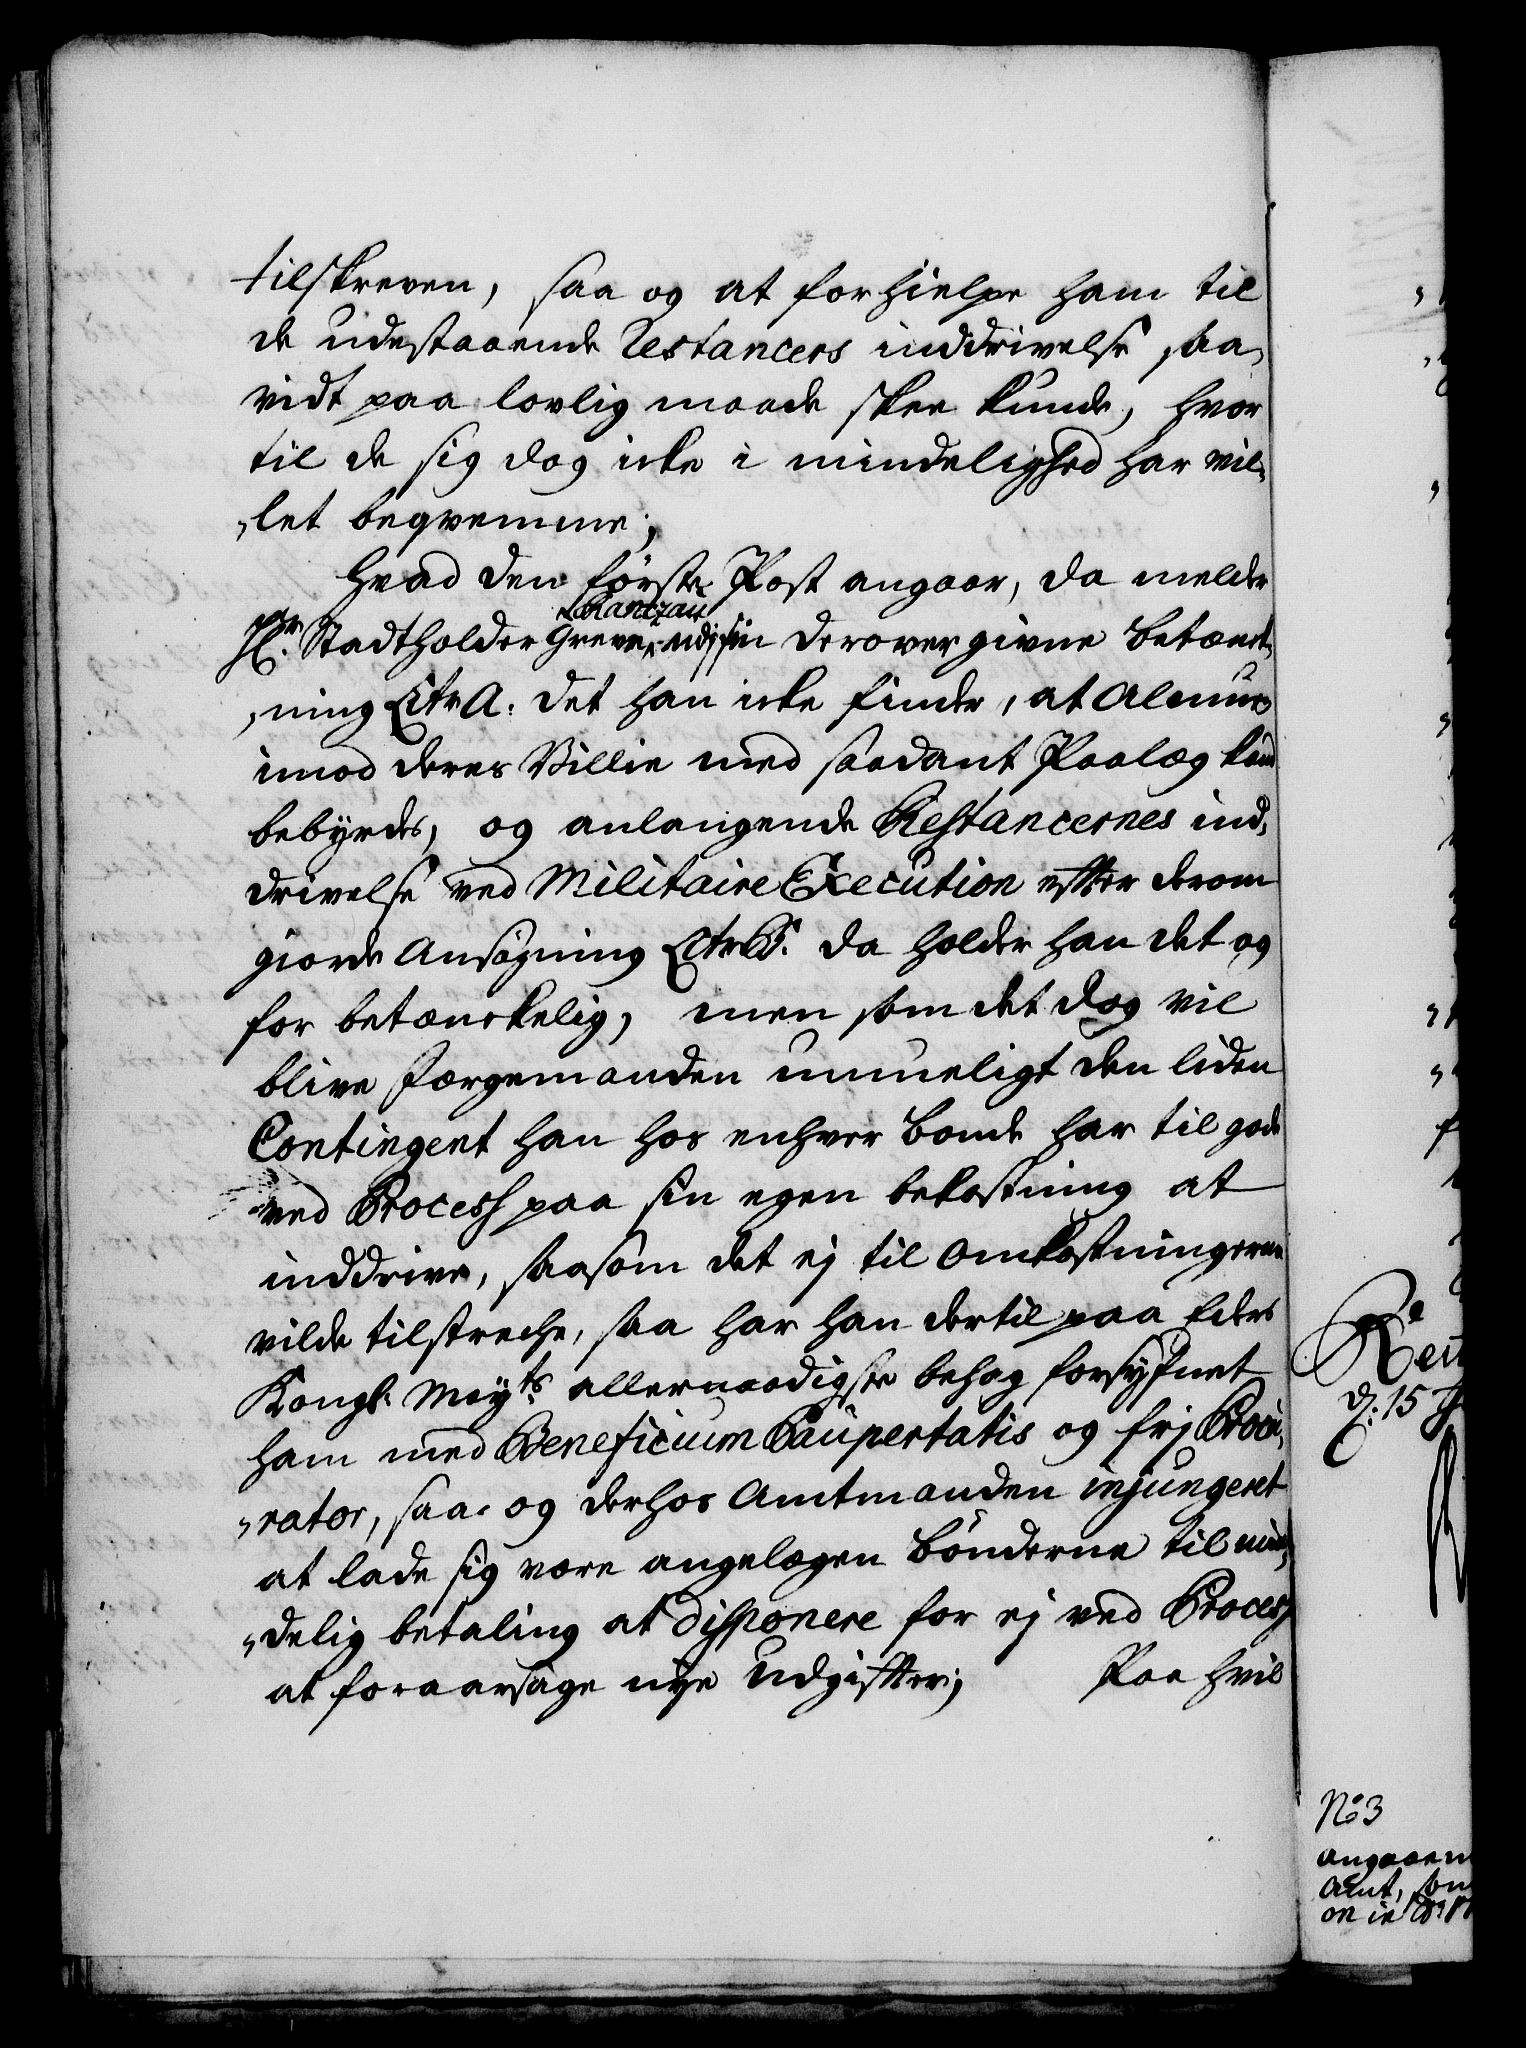 tilskreven, saa og at forhielpe ham til
de udestaaende Restancers inddrivelse saa„
vidt paa lovlig maade skee kunde, hvor
til de sig dog icke i mindelighed har vil„
„let beqvemme;
Hvad den første Post angaar, da melder
Hr. Stadtholder Greve Rantzau udj sin derover givne betænk„
„ning Litr A. det han icke finder, at Almuen
imod deres Villie med saadant Paalæg kand
bebyrdes, og anlangende Restancernes ind„
drivelse ved Militaire Execution efter derom
giorde Ansøgning Litr B. da holder han det og
for betænckelig, men som det dog vil
blive Færgemanden umueligt den liden
Contingent han hos enhver bonde har til gode
ved Process paa sin egen bekostning at
inddrive, saasom det ej til Omkostningerne
vilde tilstreche, saa har han dertil paa Eders
Kongl. Mayts allernaadigste behag forsyhnet
ham med Beneficium Paupertatis og frj Procu„
„rator, saa og derhos Amtmanden injungeret
at lade sig være angelægen bønderne til min„
„delig betaling at disponere for ej ved Process
at foraarsage nye Udgifter; Paa hvil
d: 15
No 3
angaaen
Amt, som